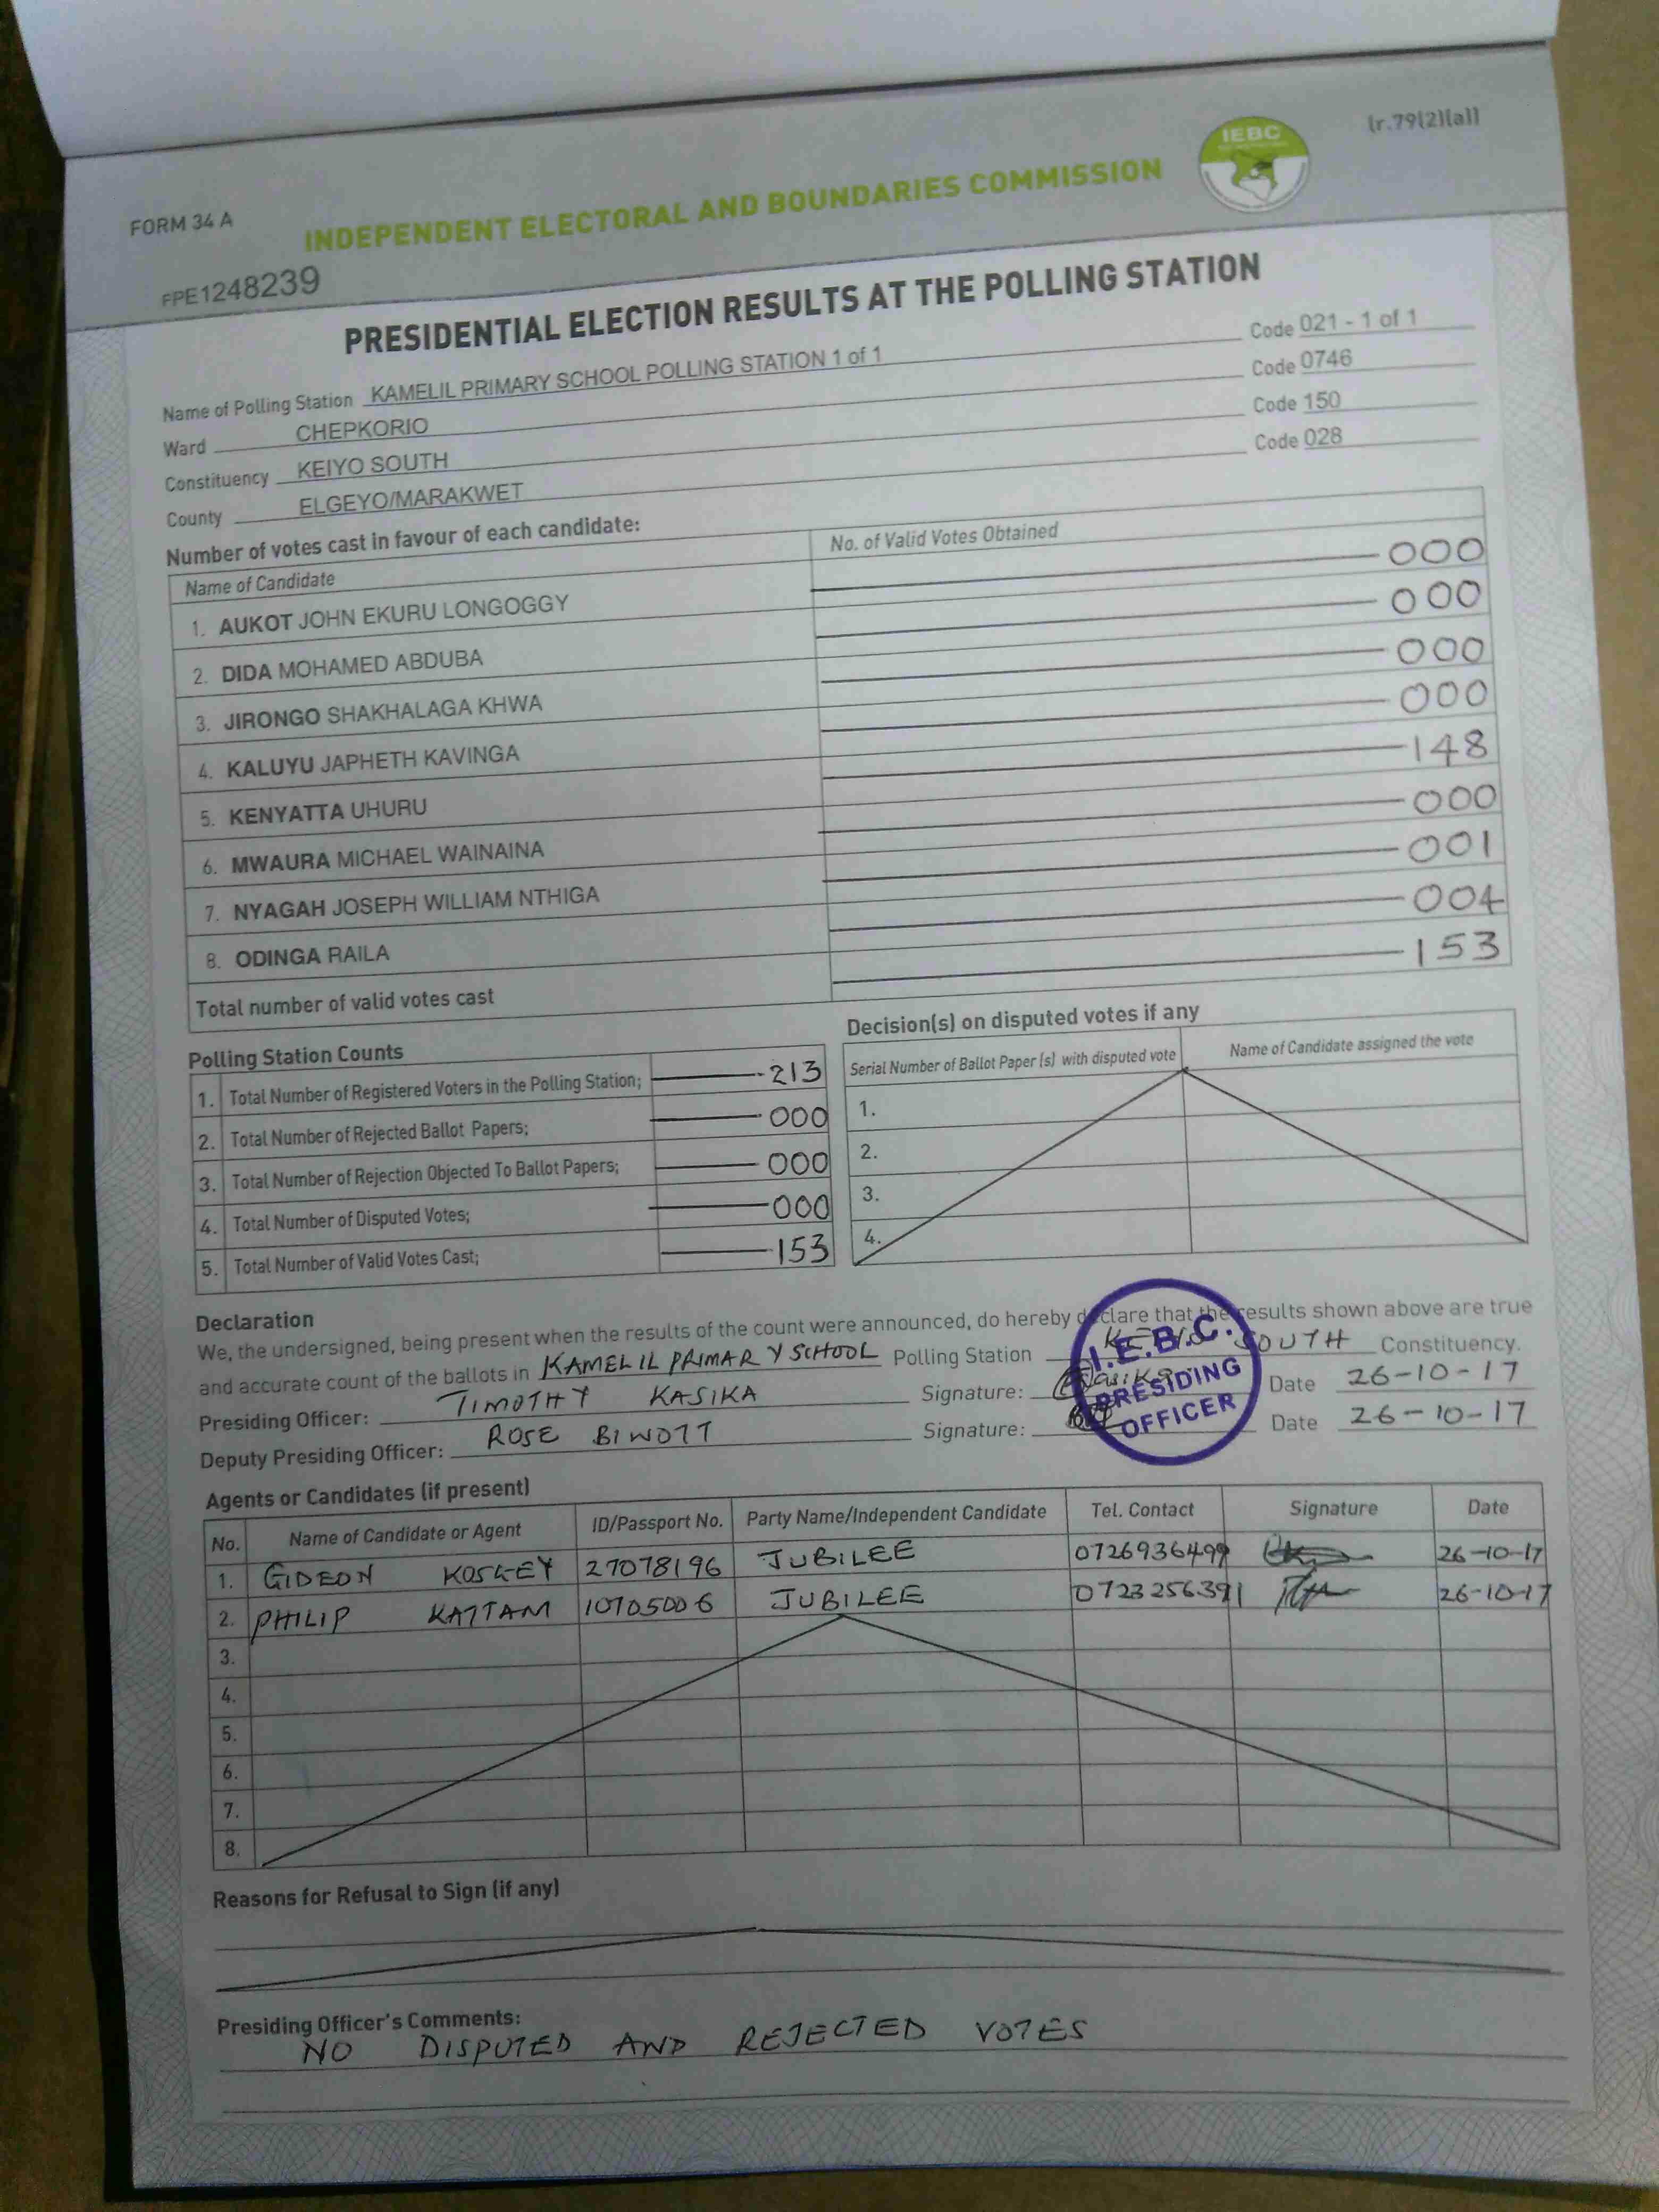 [r.79(2)(a)]
IEBC
FORM 34 A
INDEPENDENT ELECTORAL AND BOUNDARIES COMMISSION
FPE1248239
PRESIDENTIAL ELECTION RESULTS AT THE POLLING STATION
Name of Polling Station KAMELIL PRIMARY SCHOOL POLLING STATION 1 of 1 Code 021 - 1 of 1
Ward CHEPKORIO Code 0746
Constituency KEIYO SOUTH Code 150
County ELGEYO/MARAKWET Code 028
Number of votes cast in favour of each candidate:
Name of Candidate No. of Valid Votes Obtained
1. AUKOT JOHN EKURU LONGOGGY 000
2. DIDA MOHAMED ABDUBA 000
3. JIRONGO SHAKHALAGA KHWA 000
4. KALUYU JAPHETH KAVINGA 000
5. KENYATTA UHURU 148
6. MWAURA MICHAEL WAINAINA 000
7. NYAGAH JOSEPH WILLIAM NTHIGA 001
8. ODINGA RAILA 004
Total number of valid votes cast 153
Polling Station Counts
1. Total Number of Registered Voters in the Polling Station; 213
2. Total Number of Rejected Ballot Papers; 000
3. Total Number of Rejection Objected To Ballot Papers; 000
4. Total Number of Disputed Votes; 000
5. Total Number of Valid Votes Cast; 153
Decision(s) on disputed votes if any
Serial Number of Ballot Paper (s) with disputed vote Name of Candidate assigned the vote
1.
2.
3.
4.
Declaration
We, the undersigned, being present when the results of the count were announced, do hereby declare that the results shown above are true
and accurate count of the ballots in KAMELIL PRIMARY SCHOOL Polling Station KEIYO SOUTH Constituency.
Presiding Officer: TIMOTHY KASIKA Signature: Date 26-10-17
Deputy Presiding Officer: ROSE BIWOTT Signature: Date 26-10-17
I.E.B.C.
PRESIDING
OFFICER
Agents or Candidates (if present)
No. Name of Candidate or Agent ID/Passport No. Party Name/Independent Candidate Tel. Contact Signature Date
1. GIDEON KOSGEY 27078196 JUBILEE 0726936499 26-10-17
2. PHILIP KATTAM 10705006 JUBILEE 0723256391 26-10-17
3.
4.
5.
6.
7.
8.
Reasons for Refusal to Sign (if any)
Presiding Officer's Comments:
NO DISPUTED AND REJECTED VOTES